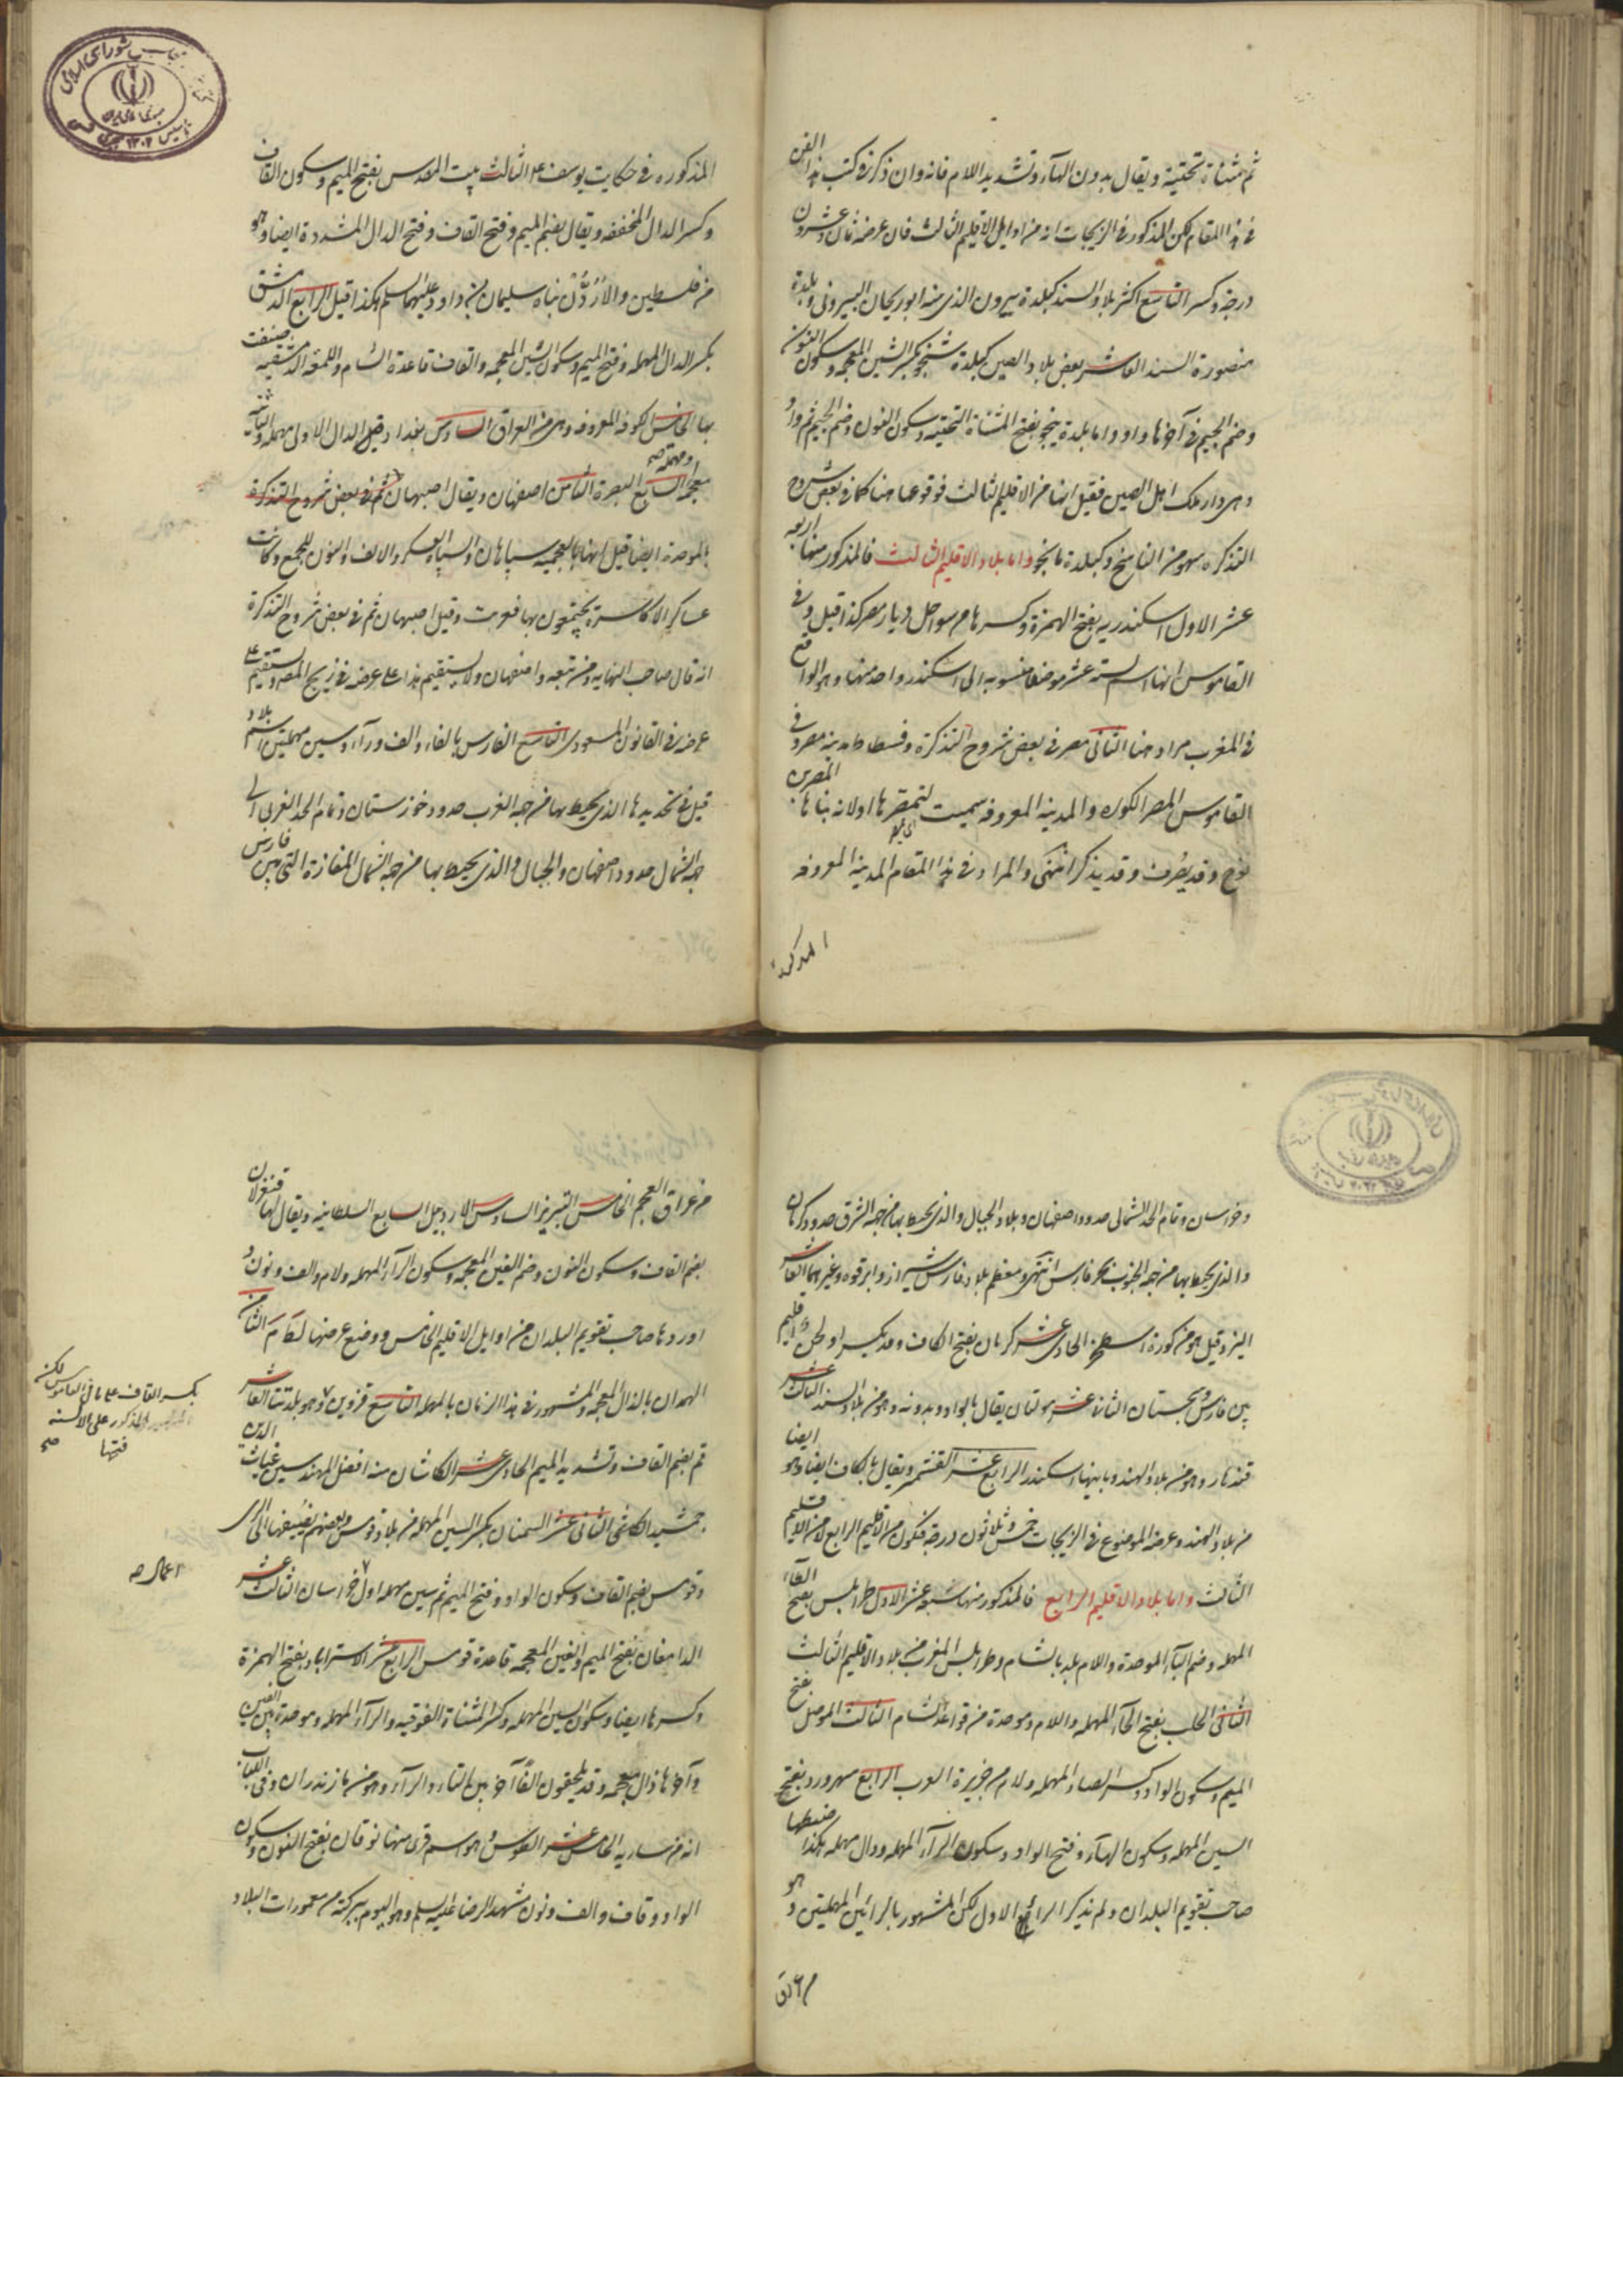 ثم مثناة تحتية ويقال بدون الهاء وتشديد اللام فانه وان ذكر في كتب هذا الفن
في هذا المقام لكن المذكور في الزيجات انه من اوايل الاقليم الثالث فان عرضه ثمان وعشرون
درجة وكسر التاسع اكثر بلاد السند كبلدة بيرون الذي منه ابو ريحان البيروني وبلدة
منصورة السند العاشر بعض بلاد الصين كبلدة شنجو بكسر الشين المعجمة وسكون النون
وضم الجيم في آخرها واو واما بلدة ينجو بفتح المثناة التحتية وسكون النون وضم الجيم ثم واو
وهى دار ملك اهل الصين فقيل انها من الاقليم الثالث فوقوعها هنا كما في بعض شروح
التذكره سهو من الناسخ وكبلدة مانجو واما بلاد الاقليم الثالث فالمذكور منها اربعه
عشر الاول اسكندريه بفتح الهمزة وكسرها من سواحل ديار مصر كذا قيل وفى
القاموس انها اسم لستة عشر موضعا منسوبه الى اسكندر واحد منها وهو الواقع
في المغرب مراد هنا الثانى مصر في بعض شروح التذكرة وفسطاط مدينة مصر وفى
القاموس المصر الكوره والمدينه المعروفه سميت لتمصرها اولانه بناها المصر بن
نوح وقد يصرف وقد يذكر انتهى والمراد في هذا المقام المدينة المعروفه
المذكوره
المذكوره في حكايت يوسف ع الثالث بيت المقدس بفتح الميم وسكون القاف
وكسر الدال المخففه ويقال بضم الميم وفتح القاف وفتح الدال المشددة ايضا وهو
من فلسطين والاردن بناه سليمان بن داود عليهما السلم هكذا قيل الرابع الدمشق
بكسر الدال المهملة وفتح الميم وسكون الشين المعجمه والقاف قاعدة الشام واللمعه الدمشقيه صنفت
بها الخامس الكوفه المعروفه وهى من العراق السادس بغداد وقيل الدال الاولى مهملة والثانيه
معجمه السابع البصرة الثامن اصفهان ويقال اصبهان ثم في بعض شروح التذكرة
بالموحدة ايضا قيل انها بالعجميه سپاهان والسپاه العسكر والالف والنون للجمع وكانت
عساكر الاكاسرة يجتمعون بها فعربت وقيل اصبهان ثم في بعض شروح التذكرة
انه قال صاحب النهايه ومن تبعه واصفهان ولا يستقيم هذا على عرضه في زيج المصر ويستقيم على
عرضه في القانون المسعودى التاسع الفارس بالفاء والف وراء وسين مهملتين اسم بلاد
قيل في تحديدها الذي يحيط بها من جهه الغرب حدود خوزستان وتمام الحد الغربى الى
جهه الشمال حدود اصفهان والجبال والذي يحيط بها من جهه الشمال المفازة التى بين فارس
وخراسان وتمام الحد الشمالى حدود اصفهان وبلاد الجبال والذي يحيط بها من جهه الشرق حدود كرمان
والذي يحيط بها من جهه الجنوب بحر فارس انتهى ومعظم بلاد فارس شيراز وابرقوه وغيرهما العاشر
اليزد قيل هو من كورة اصطخر الحادى عشر كرمان بفتح الكاف وقد يكسر او لحن اقليم
بين فارس وسجستان الثانى عشر مولتان يقال بالواو وبدونه وهو من بلاد السند الثالث عشر
قندهار وهو من بلاد الهند وبانيها اسكندر الرابع عشر القشمير ويقال بالكاف ايضا وهو ايضا
من بلاد الهند وعرضه الموضوع في الزيجات خمس وثلاثون درجة فتكون من الاقليم الرابع لا من الاقليم
الثالث واما بلاد الاقليم الرابع فالمذكور منها سبعة عشر الاول طرابلس بفتح الطاء
المهمله وضم الباء الموحدة واللام بلد بالشام وطرابلس المغرب من بلاد الاقليم الثالث
الثانى الحلب بفتح الحاء المهمله واللام وموحدة من قواعد الشام الثالث الموصل بفتح
الميم وسكون الواو وكسر الصاد المهمله ولام من جزيرة العرب الرابع سهرورد بفتح
السين المهمله وسكون الهاء وفتح الواو وسكون الراء المهمله ودال مهمله هكذا ضبطها
صاحب تقويم البلدان ولم يذكر الراء الاول لكن المشهور بالرائين المهملتين وهو
من عراق
من عراق العجم الخامس التبريز السادس الاردبيل السابع السلطانيه ويقال لها قنغرلان
بضم القاف وسكون النون وضم الغين المعجمه وسكون الراء المهمله ولام والف ونون
اوردها صاحب تقويم البلدان من اوايل الاقليم الخامس ووضع عرضها الثامن
الهمدان بالذال المعجمه والمشهور في هذا الزمان بالمهمله التاسع قزوين وهو بلدتنا العاشر
قم بضم القاف وتشديد الميم الحادى عشر الكاشان منه افضل المهندسين غياث الدين
جمشيد الكاشى الثانى عشر السمنان بكسر السين المهمله من بلاد قومس وبعضهم يضيفها الى الرى
وقومس بضم القاف وسكون الواو وفتح الميم ثم سين مهمله اول خراسان الثالث عشر
الدامغان بفتح الميم والغين المعجمه قاعدة قومس الرابع عشر الاستراباد بفتح الهمزة
وكسرها ايضا وسكون السين المهمله وكسر المثناة الفوقيه والراء المهمله وموحدة بين الفين
وآخرها ذال معجمه وقد يلحقون الفا آخر بين التاء والراء وهو من مازندران وفى اللباب
انه من ساريه الخامس عشر الطوس وهو اسم قرى منها نوقان بفتح النون وسكون
الواو وقاف والف ونون مشهد الرضا عليه السلم وهو اليوم ببركته من معمورات البلاد
بكسر القاف على ما في القاموس لكن
المذكور على الالسنه
فتحها صح
اعمال صح